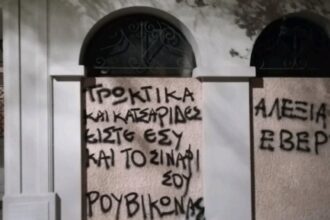 ΤΡΩΚΤΙΚΑ
ΚΑΙ ΚΑΤΣΑΡΙΔΕΣ
ΕΙΣΤΕ ΕΣΥ
ΚΑΙ ΤΟ ΣΙΝΑΦΙ
ΣΟΥ
ΡΟΥΒΙΚΩΝΑΣ
ΑΛΕΞΙΑ
ΕΒΕΡ